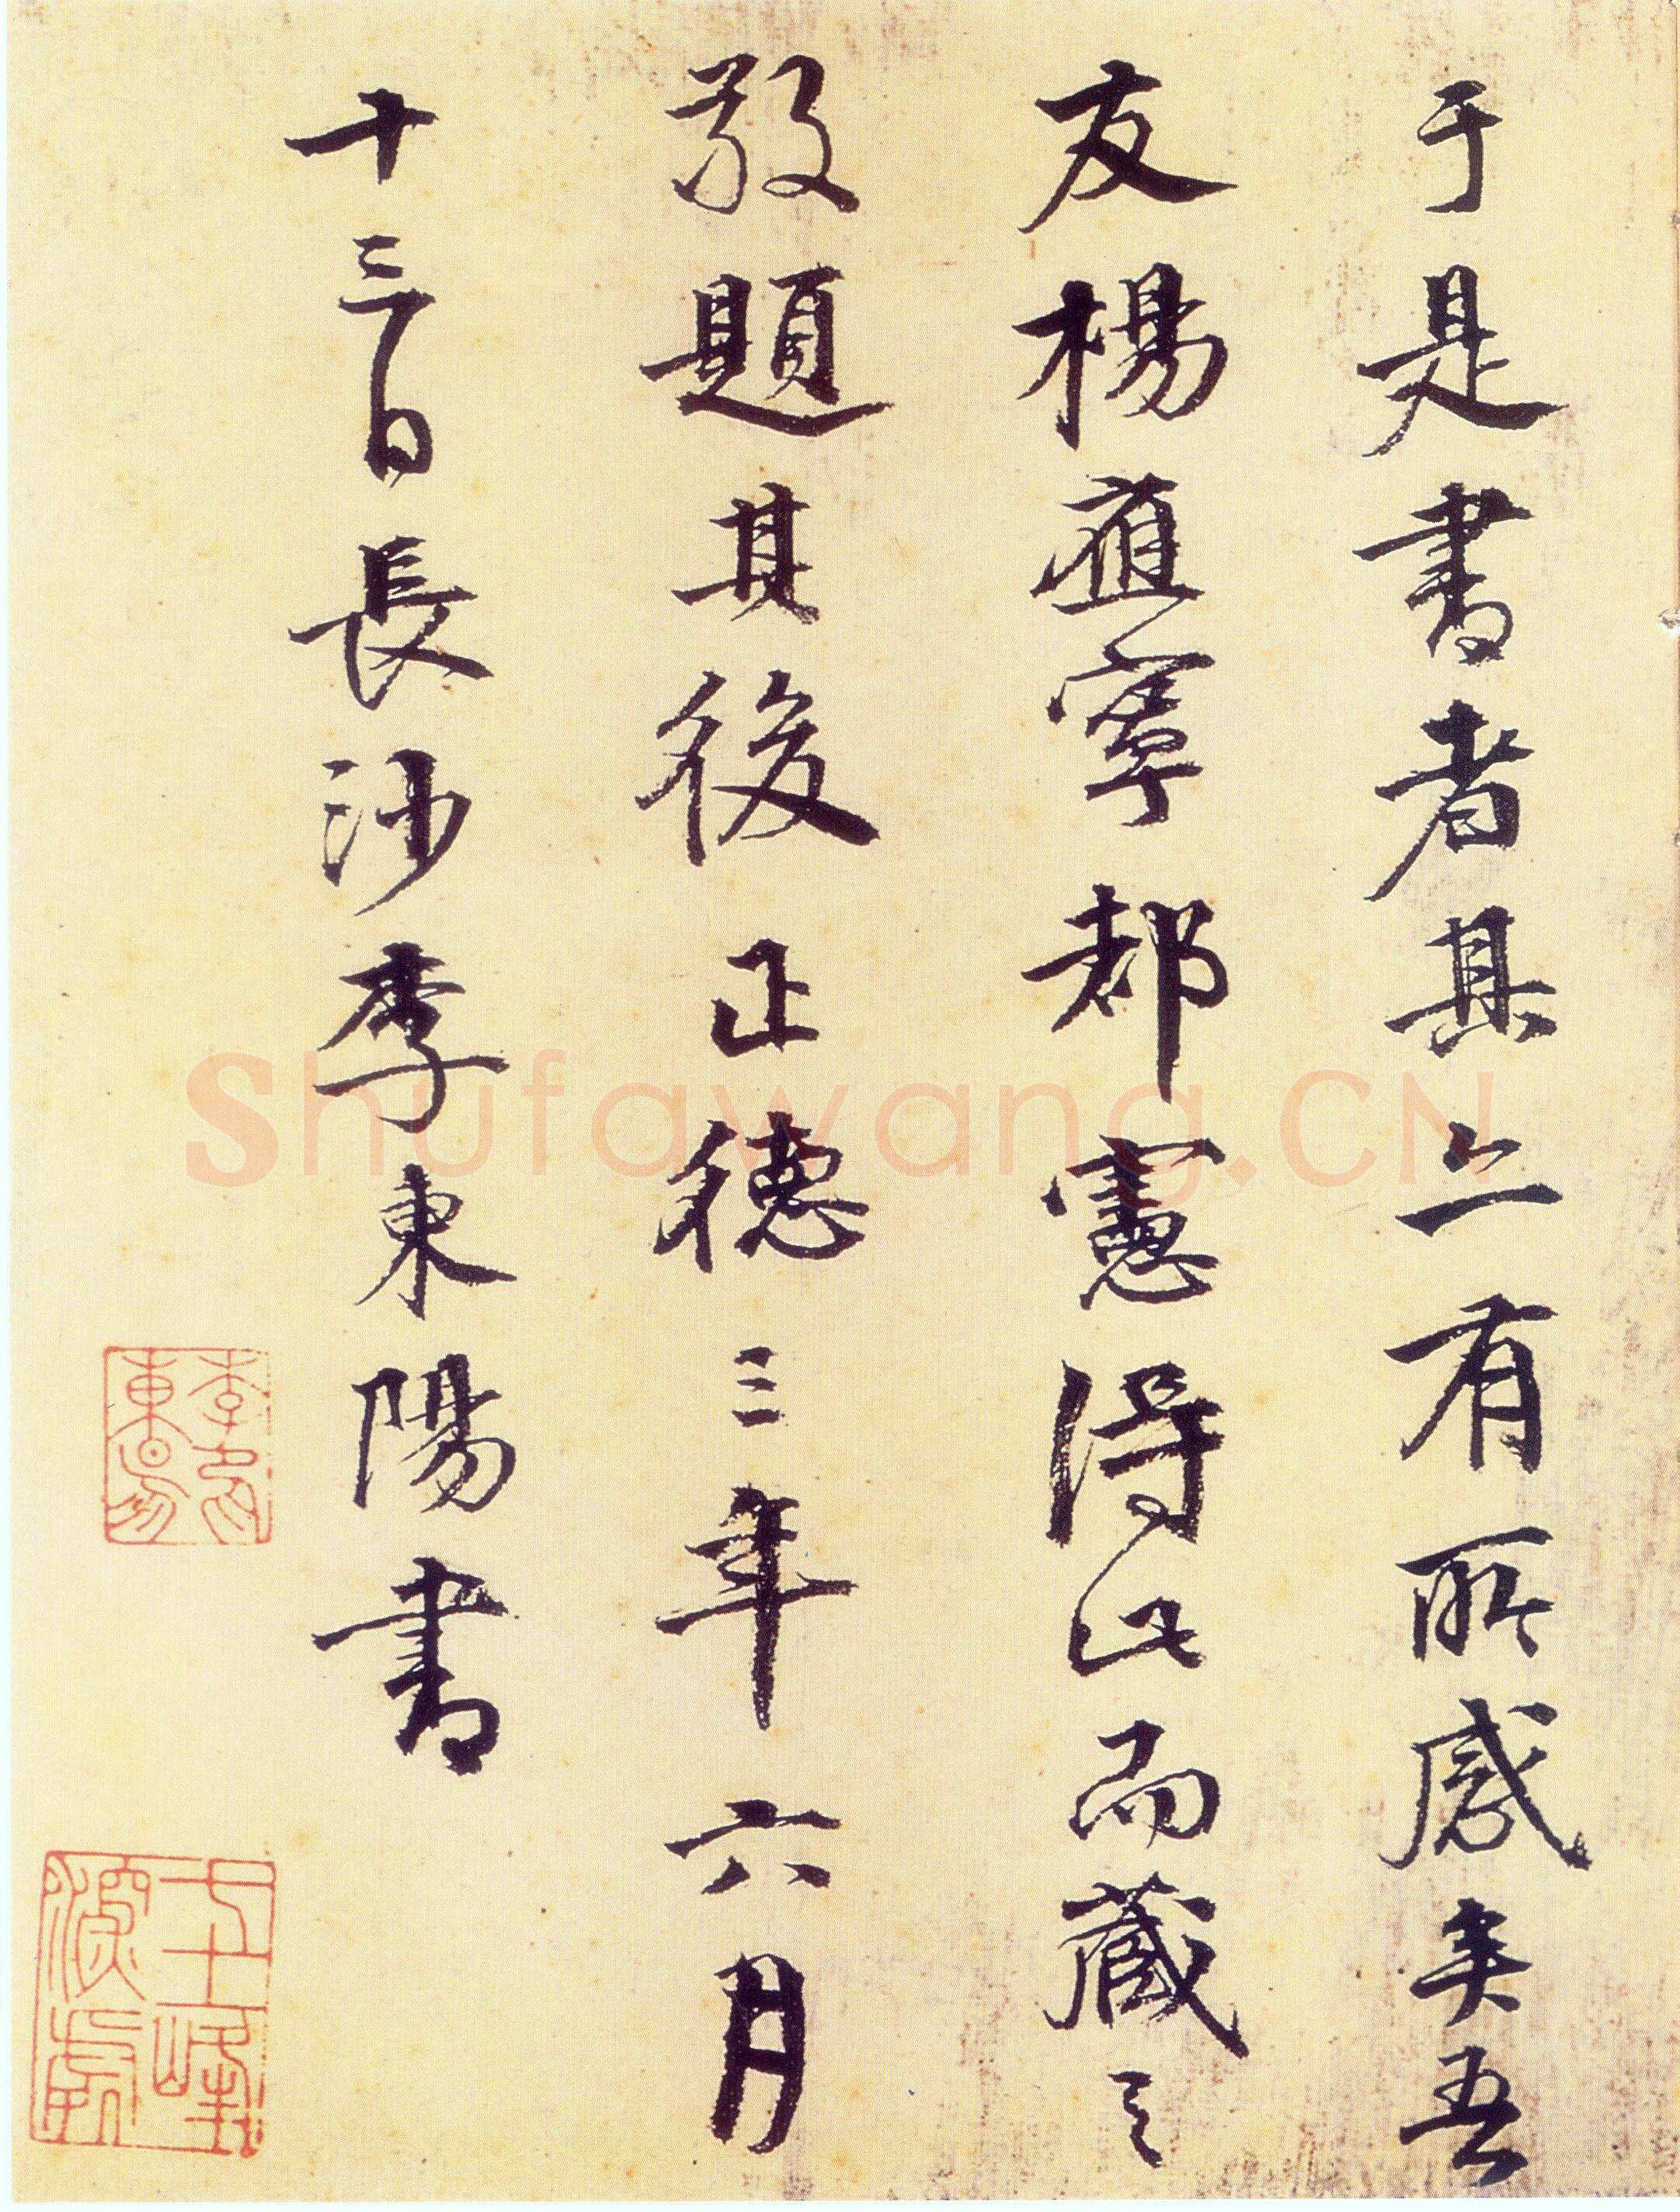 于是書者其亦有所感矣吾
友楊應寧都憲得此而藏之
敬題其後正德三年六月
十三日長沙李東陽書
李東陽
七十二峰深處
Shufawang.CN